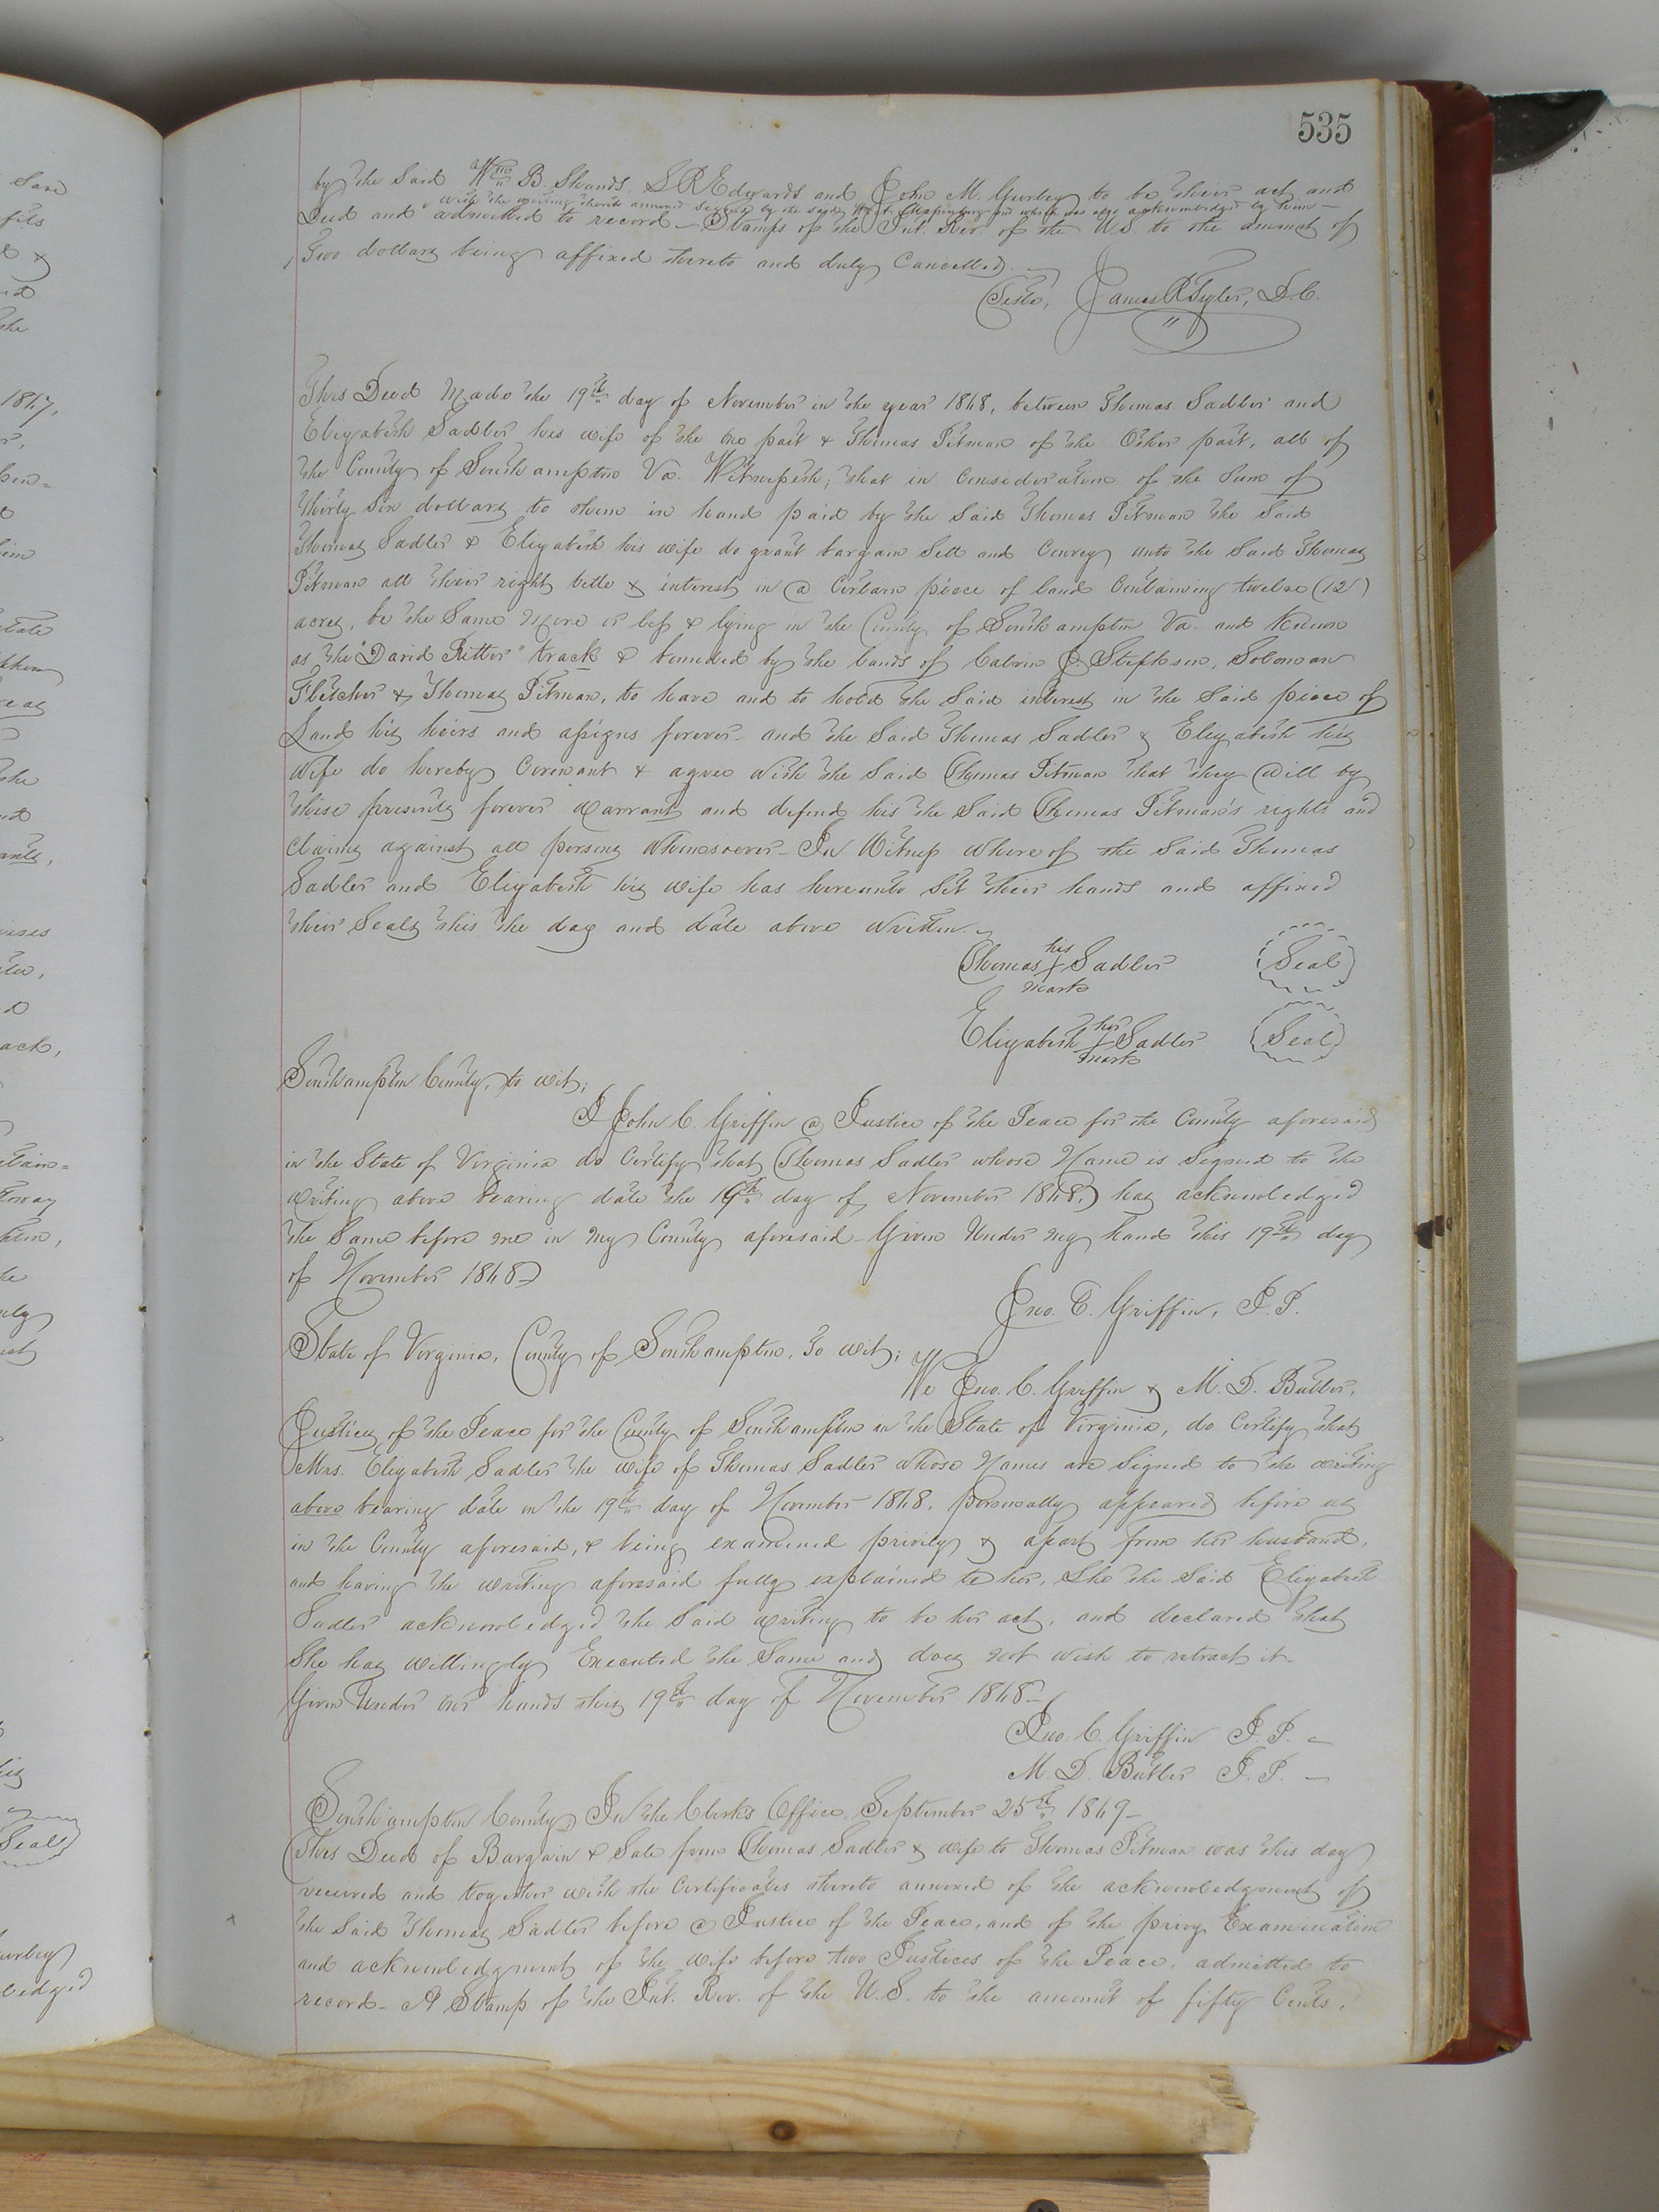 535
by the Said Wm B. Shands, S R Edwards and John M. Gurley to be their act and
& with the writing thereto annexed Signed by the said and which was also acknowledged by him
Deed and admitted to record – Stamps of the Int. Rev. of the U.S. to the amount of
Two dollars being affixed thereto and duly Cancelled. –
Teste, James R Tyler, D.C.
This Deed Made the 19th day of November in the year 1868, between Thomas Sadler and
Elizabeth Sadler his wife of the one part & Thomas Pitman of the Other part, all of
the County of Southampton Va. Witnesseth, that in Consideration of the Sum of
thirty Six dollars to them in hand paid by the Said Thomas Pitman the Said
Thomas Sadler & Elizabeth his wife do grant bargain Sell and Convey unto the Said Thomas
Pitman all their right title & interest in a Certain piece of land Containing twelve (12)
acres, be the Same More or less & lying in the County of Southampton Va. and Known
as the "David Ritter" track & bounded by the lands of Calvin J. Stephson, Soloman
Fletcher & Thomas Pitman, to have and to hold the Said interest in the Said piece of
Land his heirs and assigns forever – and the Said Thomas Sadler & Elizabeth his
Wife do hereby Covenant & agree with the Said Thomas Pitman that they Will by
these presents forever Warrant and defend his the Said Thomas Pitman's rights and
Claims against all persons Whomsoever – In Witness Whereof the Said Thomas
Sadler and Elizabeth his wife has hereunto Set their hands and affixed
their Seals this the day and date above Written. –
his
Thomas X Sadler (Seal)
mark
her
Elizabeth X Sadler (Seal)
mark
Southampton County, to wit;
I John C. Griffin a Justice of the Peace for the County aforesaid
in the State of Virginia do Certify that Thomas Sadler whose Name is Signed to the
Writing above bearing date the 19th day of November 1868, has acknowledged
the Same before me in my County aforesaid – Given Under my hand this 19th day
of November 1868
Jno. C. Griffin, J.P.
State of Virginia, County of Southampton, To wit;
We Jno. C. Griffin & M. D. Butler,
Justices of the Peace for the County of Southampton in the State of Virginia, do Certify that
Mrs. Elizabeth Sadler the wife of Thomas Sadler Whose Names are Signed to the writing
above bearing date on the 19th day of November 1868, personally appeared before us
in the County aforesaid, & being examined privily & apart from her husband,
and having the writing aforesaid fully explained to her, She the Said Elizabeth
Sadler acknowledged the Said writing to be her act, and declared that
She has willingly Executed the Same and does not wish to retract it –
Given Under our hands this 19th day of November 1868 –
Jno. C. Griffin J.P. –
M. D. Butler J.P. –
Southampton County, In the Clerk's Office, September 25th 1869 –
This Deed of Bargain & Sale from Thomas Sadler & wife to Thomas Pitman was this day
received and together with the Certificates thereto annexed of the acknowledgment of
the Said Thomas Sadler before a Justice of the Peace, and of the privy Examination
and acknowledgment of the wife before two Justices of the Peace, admitted to
record – A Stamp of the Int. Rev. of the U.S. to the amount of fifty Cents,